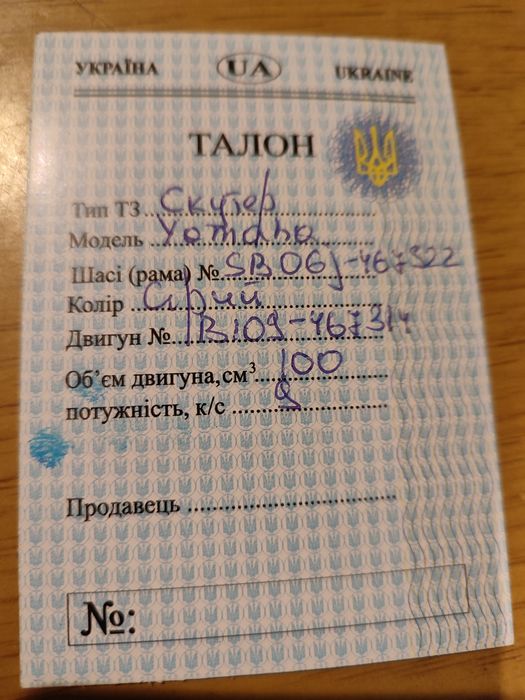 УКРАЇНА UA UKRAINE
ТАЛОН
Тип ТЗ Скутер
Модель Yamaha
Шасі (рама) № SB06J-467322
Колір Сірий
Двигун № B109-467314
Об'єм двигуна, см³ 100
потужність, к/с 9
Продавець
№: